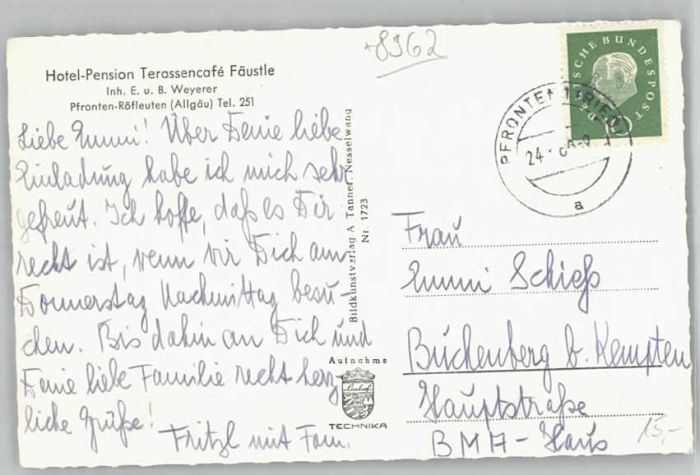 +8962
Hotel-Pension Terassencafé Fäustle
Inh. E. u. B. Weyerer
Pfronten-Röfleuten (Allgäu) Tel. 251
Liebe Emmi! Über Deine liebe
Einladung habe ich mich sehr
gefreut. Ich hoffe, daß es Dir
recht ist, wenn wir Dich am
Donnerstag Nachmittag besu-
chen. Bis dahin an Dich und
Deine liebe Familie recht herz-
liche Grüße!
Fritzl mit Fam.
Bildkunstverlag A Tanner, Nesselwang
Nr 1723
Aufnahme
TECHNIKA
DEUTSCHE BUNDESPOST
PFRONTEN
24.
a
Frau
Emmi Schieß
Buchenberg b. Kempten
Hauptstraße
BMA-Haus
15,-